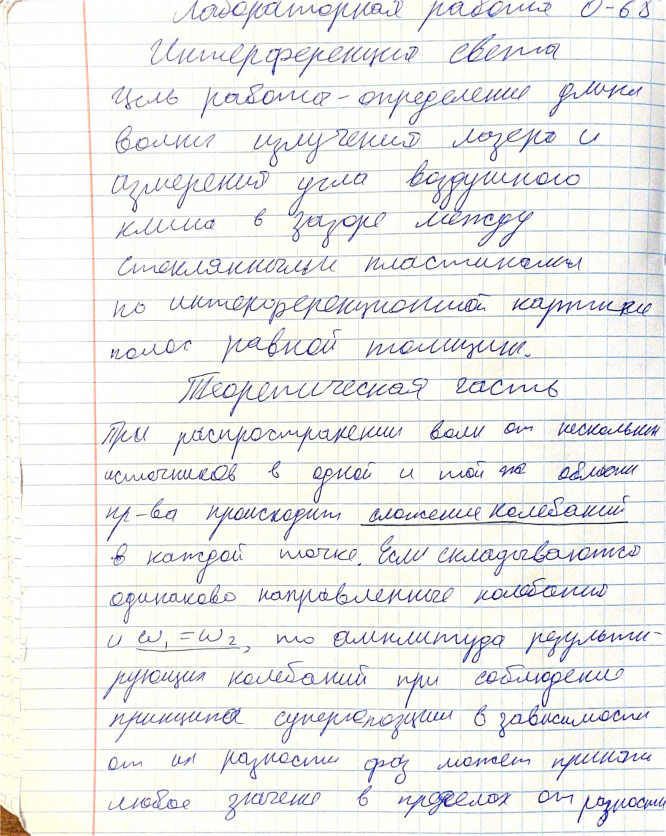 Лабораторная работа О-68
Интерференция света
Цель работа - определение длина
волны излучения лазера и
измерений угла воздушного
клина в зазоре между
стеклянными пластинами
по интерференционной картине
полос равной толщины.
Теоретическая часть
При распространении волн от нескольких
источников в одной и той же области
пр-ва происходит сложение колебаний
в каждой точке. Если складываются
одинаково направленные колебания
и ω₁=ω₂, то амплитуда результи-
рующих колебаний при соблюдение
принципа суперпозиции в зависимости
от их разности фаз может принять
любое значение в пределах от разности